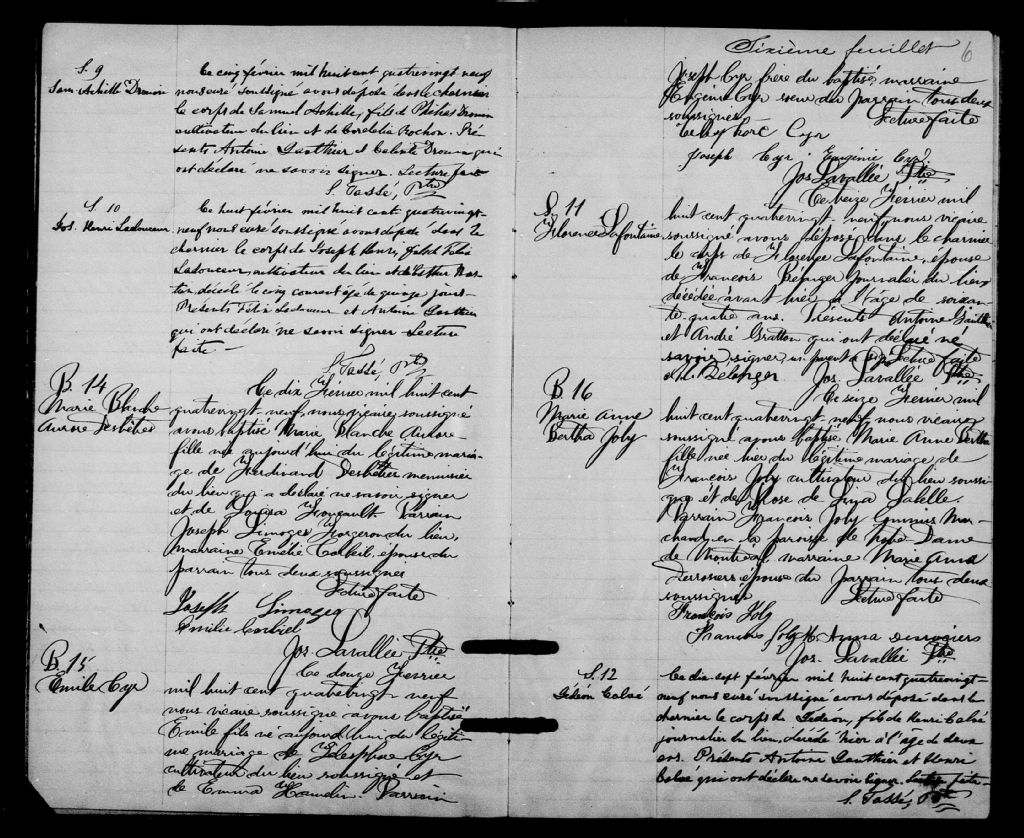 S. 9
Sam. Achille Drouin
Ce cinq février mil huit cent quatrevingt neuf
nous curé soussigné avons déposé dans le charnier
le corps de Samuel Achille, fils de Philias Drouin
cultivateur du lieu et de Cordelia Rochon. Pré-
sents Antoine Gauthier et Calixte Drouin qui
ont déclaré ne savoir signer. Lecture faite
S. Tassé, Ptre
S. 10
Jos. Henri Ladouceur
Ce huit février mil huit cent quatrevingt-
neuf nous curé soussigné avons déposé dans le
charnier le corps de Joseph Henri, fils de Félix
Ladouceur, cultivateur du lieu et de Esther
décédé le cinq courant âgé de quinze jours
Présents Félix Ladouceur et Antoine Gauthier
qui ont déclaré ne savoir signer Lecture
faite —
S. Tassé, Ptre
B. 14
Marie Blanche
Aurore Desbétes
Ce dix Février mil huit cent
quatrevingt neuf, nous vicaire soussigné
avons baptisé Marie Blanche Aurore
fille née aujourd'hui du légitime maria-
ge de Ferdinand menuisier
du lieu qui a déclaré ne savoir signer
et de Louisa Parrain
Joseph Limoges Forgeron du lieu,
marraine Emélie Corbeil, épouse du
parrain tous deux soussignés
Lecture faite
Joseph Limoges
Emilie Corbiel
Jos. Lavallée Ptre
B. 15
Emile Cyr
Ce douze Février
mil huit cent quatrevingt neuf
nous vicaire soussigné avons baptisé
Emile fils né aujourd'hui du légiti-
me mariage de Zélesphore Cyr
cultivateur du lieu soussigné et
de Emma Hamelin. Parrain
Sixième feuillet 6
Joseph Cyr frère du baptisé, marraine
Eugénie Cyr soeur du parrain tous deux
soussignés Lecture faite
Cyr
Joseph Cyr Eugénie Cyr
Jos. Lavallée Ptre
S. 11
Florence Lafontaine
Ce treize Février mil
huit cent quatrevingt-neuf nous vicaire
soussigné avons déposé dans le charnier
le corps de Florence Lafontaine, épouse
de François Bélanger Journalier du lieu
décédée avant hier à l'âge de soixan-
te quatre ans. Présents Antoine Gauthier
et André Gratton qui ont déclaré ne
savoir signer Lecture faite
Jos. Lavallée Ptre
B. 16
Marie Anne
Bertha Joly
Ce seize Février mil
huit cent quatrevingt neuf nous vicaire
soussigné avons baptisé Marie Anne Bertha
fille née hier du légitime mariage de
François Joly cultivateur du lieu soussi-
gné et de Rose de Lima Labelle.
Parrain François Joly Commis Mar-
chand en la paroisse de Notre Dame
de Montréal, marraine Marie Anna
Desrosiers épouse du parrain tous deux
soussignés Lecture faite
François Joly
Francois Joly M Anna Desrosiers
Jos. Lavallée Ptre
S. 12
Gédéon Calvé
Ce dix sept février mil huit cent quatrevingt-
neuf nous curé soussigné avons déposé dans le
charnier le corps de Gédéon, fils de Henri Calvé
journalier du lieu, décédé hier à l'âge de deux
ans. Présents Antoine Gauthier et Henri
Calvé qui ont déclaré ne savoir signer. Lecture faite-
S. Tassé, Ptre